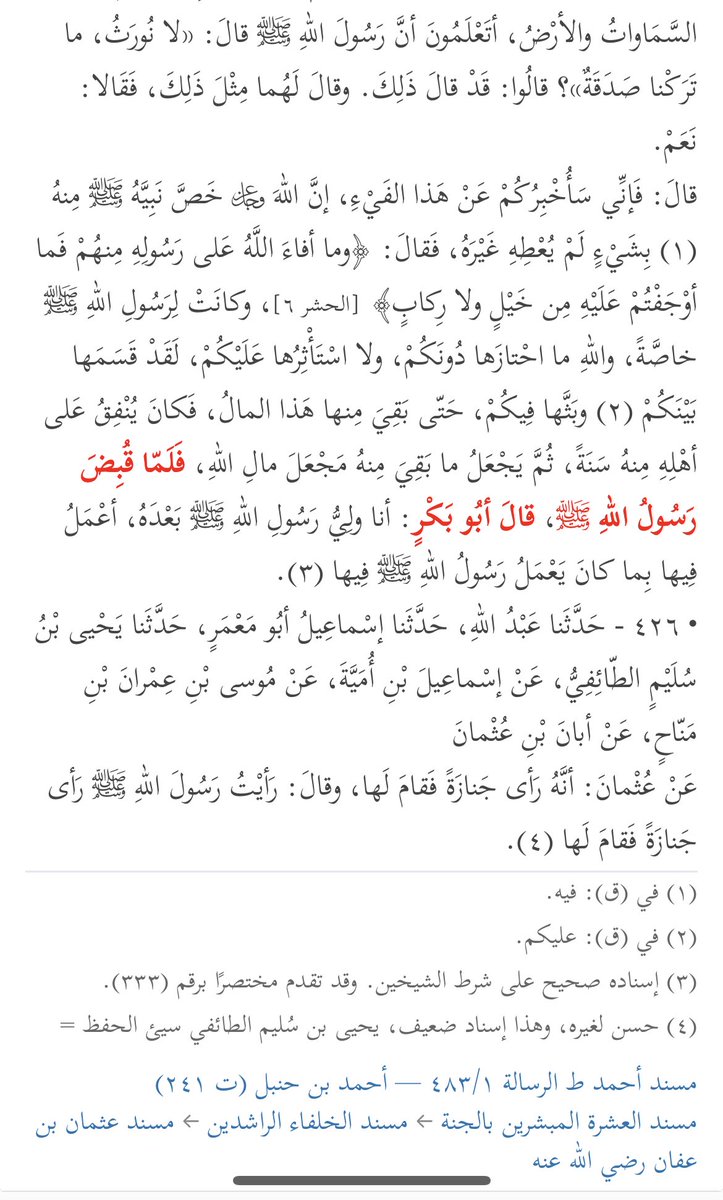 السَّمَاوَاتُ والأرْضُ، أتَعْلَمُونَ أنَّ رَسُولَ اللهِ ﷺ قالَ: «لا نُورَثُ، ما
تَرَكْنا صَدَقَةٌ»؟ قالُوا: قَدْ قالَ ذَلِكَ. وقالَ لَهُما مِثْلَ ذَلِكَ، فَقَالا:
نَعَمْ.
قالَ: فَإنِّي سَأُخْبِرُكُمْ عَنْ هَذا الفَيْءِ، إنَّ اللهَ ﷿ خَصَّ نَبِيَّهُ ﷺ مِنهُ
(١) بِشَيْءٍ لَمْ يُعْطِهِ غَيْرَهُ، فَقالَ: ﴿وما أفاءَ اللَّهُ عَلى رَسُولِهِ مِنهُمْ فَما
أوْجَفْتُمْ عَلَيْهِ مِن خَيْلٍ ولا رِكابٍ﴾ [الحشر ٦]، وكانَتْ لِرَسُولِ اللهِ ﷺ
خاصَّةً، واللهِ ما احْتازَها دُونَكُمْ، ولا اسْتَأْثِرُها عَلَيْكُمْ، لَقَدْ قَسَمَها
بَيْنَكُمْ (٢) وبَثَّها فِيكُمْ، حَتّى بَقِيَ مِنها هَذا المالُ، فَكانَ يُنْفِقُ عَلى
أهْلِهِ مِنهُ سَنَةً، ثُمَّ يَجْعَلُ ما بَقِيَ مِنهُ مَجْعَلَ مالِ اللهِ، فَلَمّا قُبِضَ
رَسُولُ اللهِ ﷺ، قالَ أبُو بَكْرٍ: أنا ولِيُّ رَسُولِ اللهِ ﷺ بَعْدَهُ، أعْمَلُ
فِيها بِما كانَ يَعْمَلُ رَسُولُ اللهِ ﷺ فِيها (٣).
• ٤٢٦ - حَدَّثَنا عَبْدُ اللهِ، حَدَّثَنا إسْماعِيلُ أبُو مَعْمَرٍ، حَدَّثَنا يَحْيى بْنُ
سُلَيْمٍ الطّائِفِيُّ، عَنْ إسْماعِيلَ بْنِ أُمَيَّةَ، عَنْ مُوسى بْنِ عِمْرانَ بْنِ
مَنّاحٍ، عَنْ أبانَ بْنِ عُثْمانَ
عَنْ عُثْمانَ: أنَّهُ رَأى جَنازَةً فَقامَ لَها، وقالَ: رَأيْتُ رَسُولَ اللهِ ﷺ رَأى
جَنازَةً فَقامَ لَها (٤).
(١) في (ق): فيه.
(٢) في (ق): عليكم.
(٣) إسناده صحيح على شرط الشيخين. وقد تقدم مختصرًا برقم (٣٣٣).
(٤) حسن لغيره، وهذا إسناد ضعيف، يحيى بن سُليم الطائفي سيئ الحفظ =
مسند أحمد ط الرسالة ١/‏٤٨٣ — أحمد بن حنبل (ت ٢٤١)
مسند العشرة المبشرين بالجنة ← مسند الخلفاء الراشدين ← مسند عثمان بن
عفان رضي الله عنه